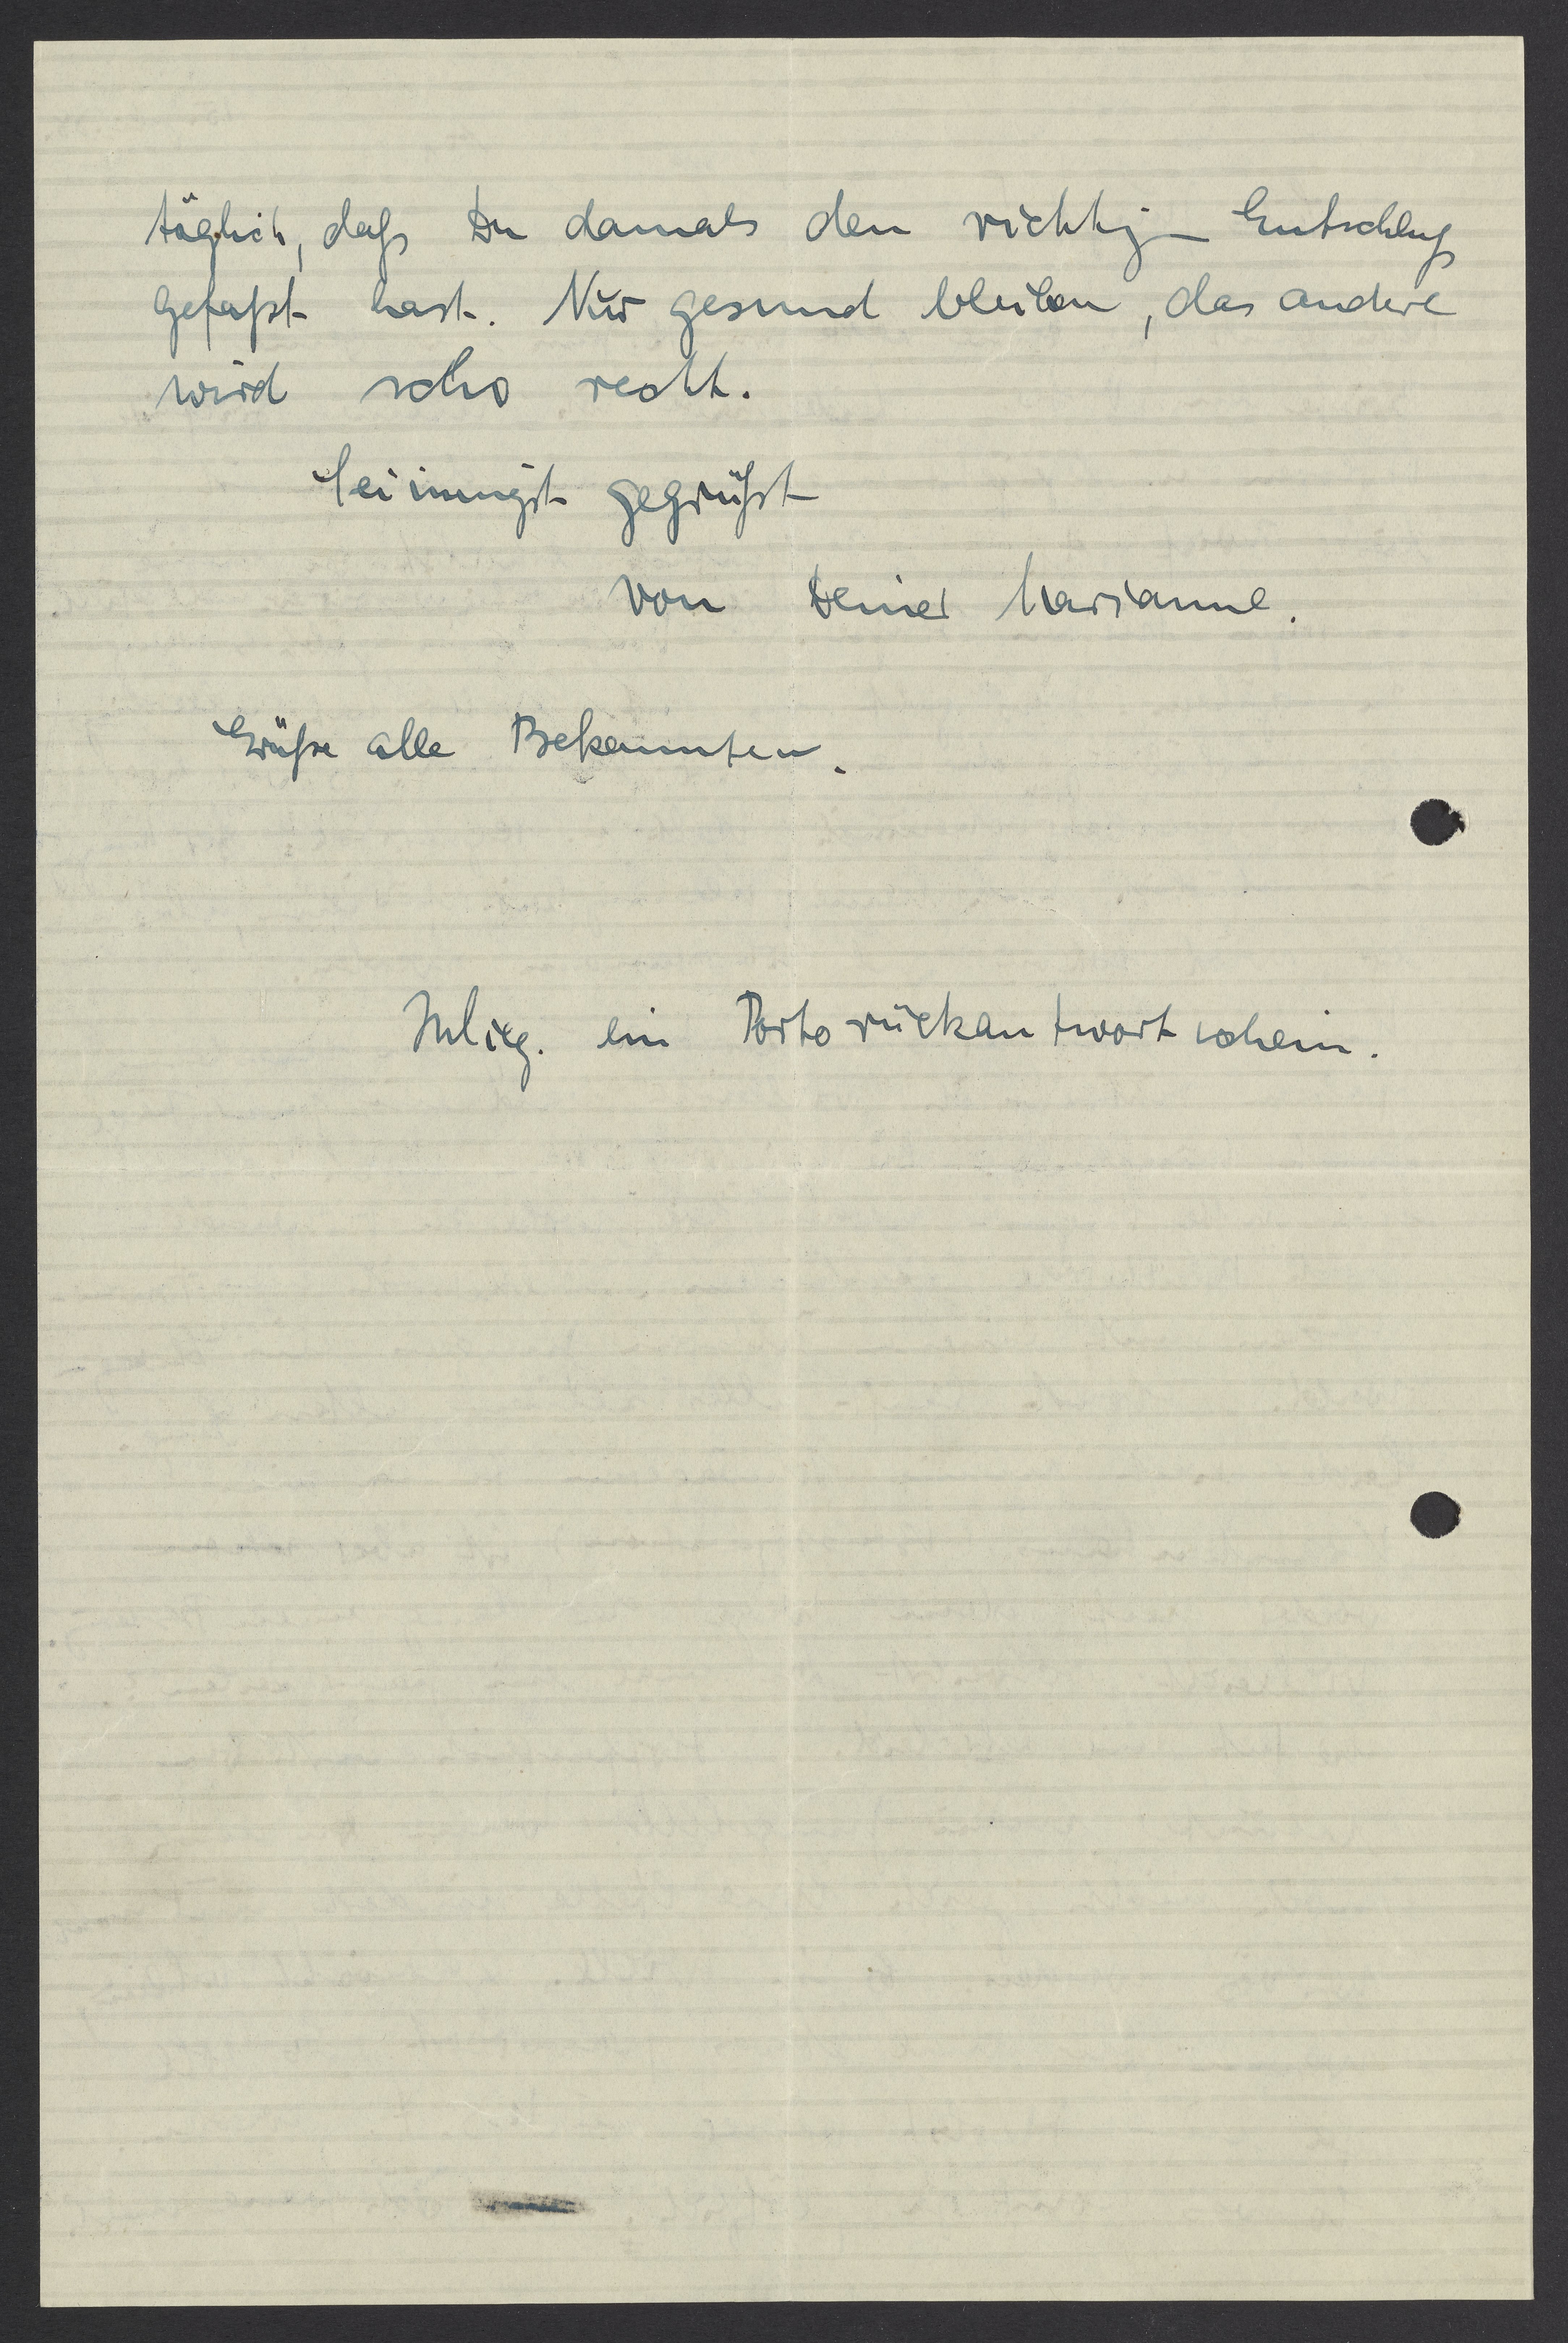 täglich, daß Du damals den richtigen Entschluß
gefaßt hast. Nur gesund bleiben, das andere
wird scho recht.
Sei innigst gegrüßt
von Deiner Marianne.
Grüße alle Bekannten.
Inlieg. ein Portorückantwortschein.